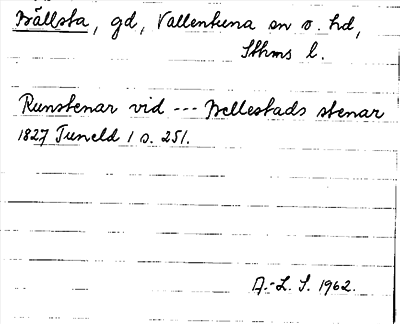 Bällsta, gd, Vallentuna sn o. hd,
Sthms l.
Runstenar vid --- Bellestads stenar
1827 Tuneld 1 s. 251.
A.-L. S. 1962.